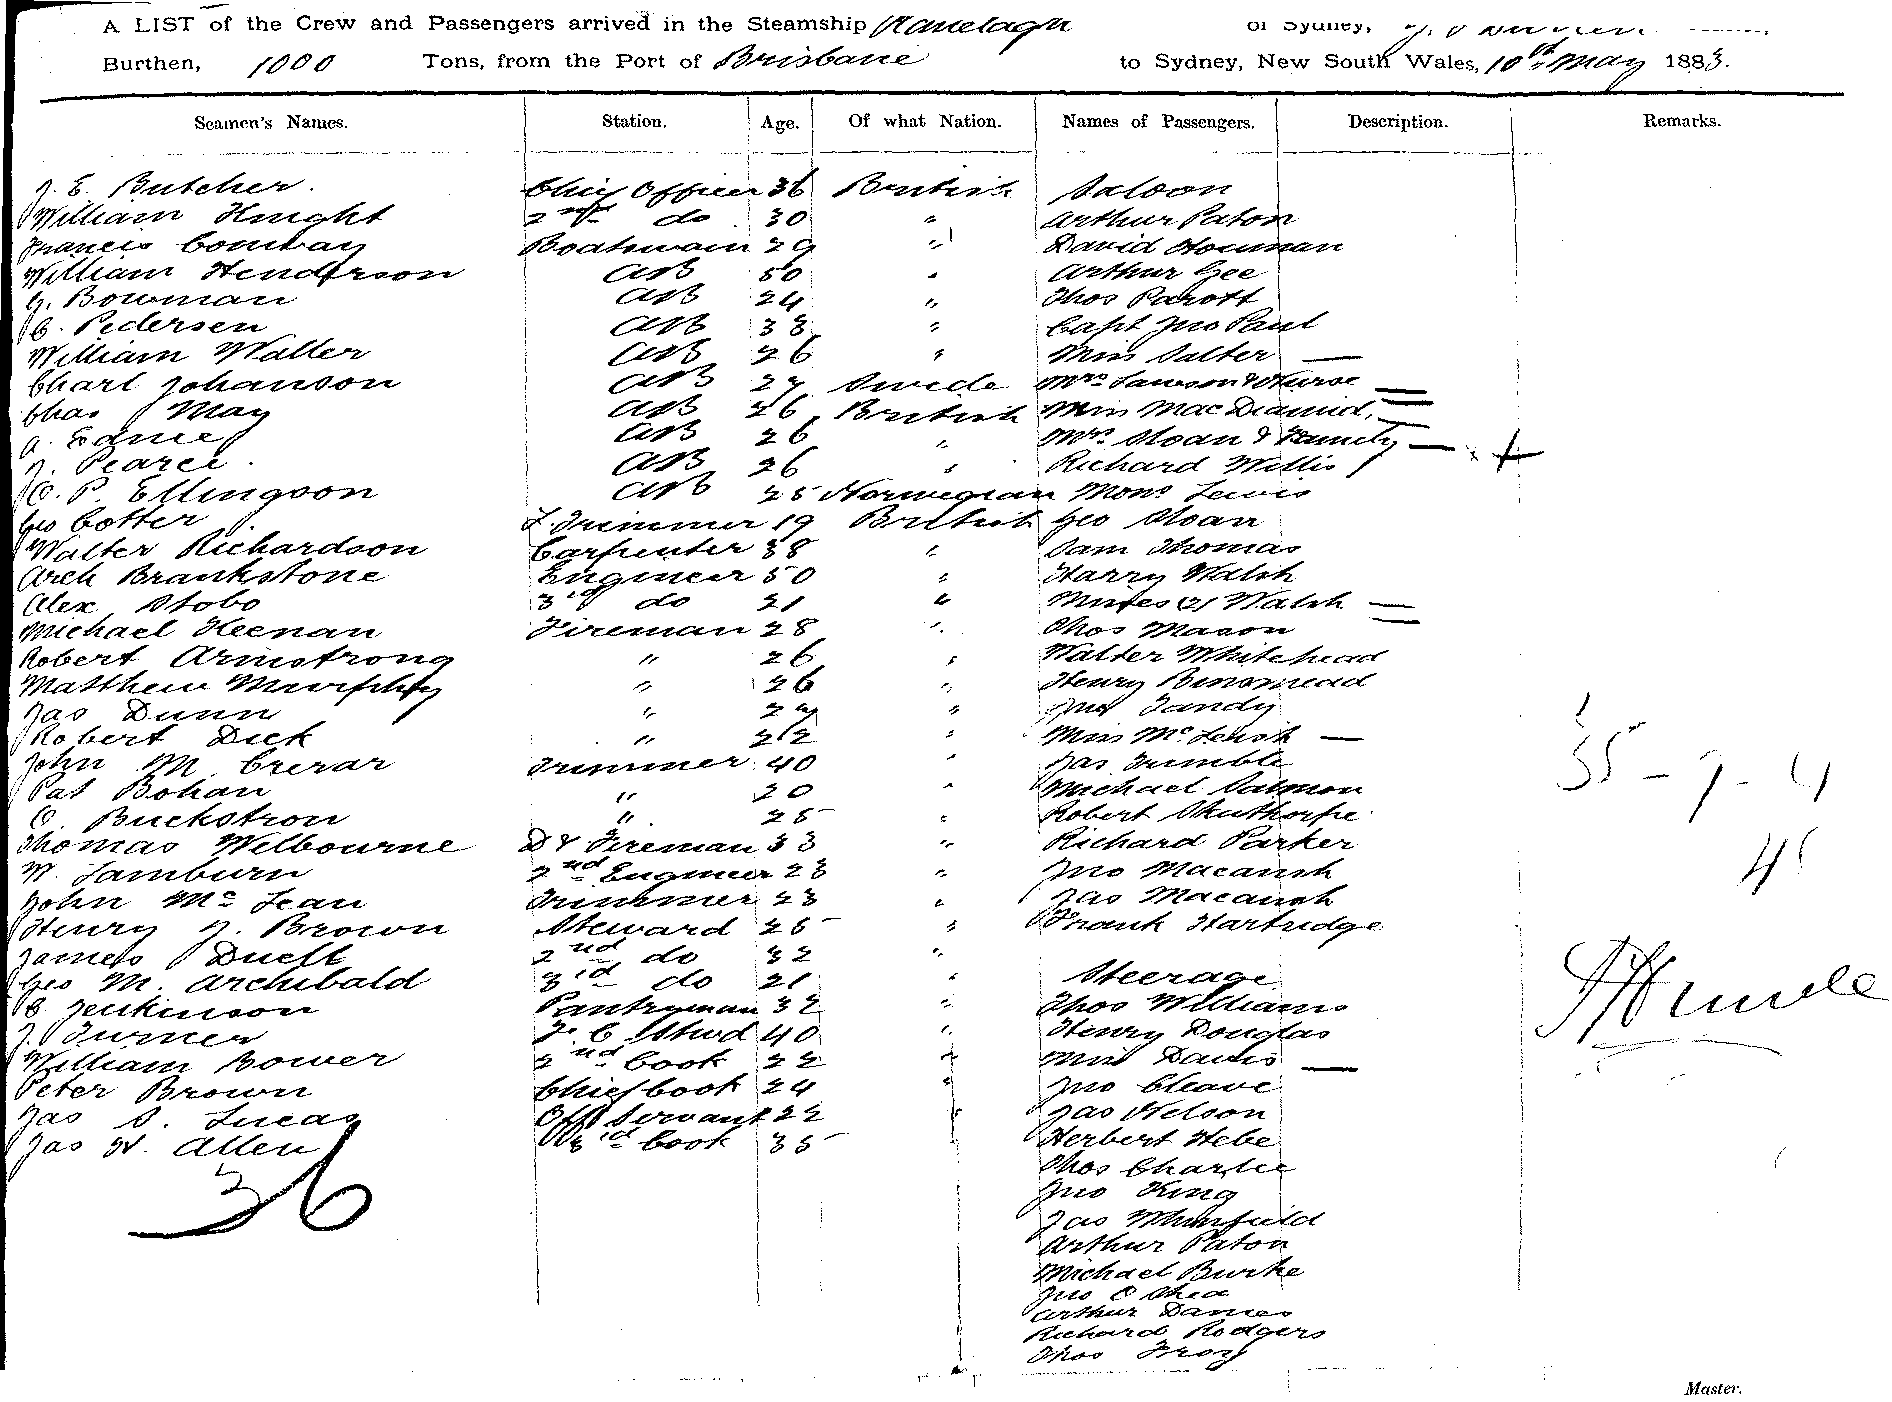 A LIST of the Crew and Passengers arrived in the Steamship Ranelagh of Sydney,
Burthen, 1000 Tons, from the Port of Brisbane to Sydney, New South Wales, 10th May 1883.
Seamen's Names. Station. Age. Of what Nation. Names of Passengers. Description. Remarks.
J. E. Butcher. Chief Officer 36 British Saloon
William Knight 2nd do 30 " Arthur Paton
Francis Conway Boatswain 29 " David
William Henderson AB 50 " Arthur Gee
G. Bowman AB 24 " Thos Parott
C. Pedersen AB 33 " Capt Jno Paul
William Waller AB 26 " Miss Salter —
Charl Johanson AB 27 Swede Mrs Lawson & Nurse =
Chas May AB 26 British Miss MacDiamid, —
AB 26 " Mrs Sloan & Family —
J. Pearce. AB 26 " Richard Willis
O. P. Ellingson AB 25 Norwegian Mons Lewis
Geo Cotter L. Trimmer 19 British Geo Sloan
Walter Richardson Carpenter 38 " Sam Thomas
Arch Brankstone Engineer 50 " Harry Walsh
Alex Stobo 3rd do 21 " Misses (2) Walsh =
Michael Keenan Fireman 28 " Thos Mason
Robert Armstrong " 26 " Walter Whitehead
Matthew Murphy " 26 " Henry Binsmead
Jas Dunn " 29 " Jno Tandy
Robert Dick " 22 " Miss McLeish —
John M. Crerar Trimmer 40 " Jas Trimble
Pat Bohan " 20 " Michael Salmon
O. Buckstron " 25 " Robert Skuthorpe
Thomas Welbourne D & Fireman 33 " Richard Parker
W. Lamburn 2nd Engineer 23 " Jno Macansh
John McLean Trimmer 23 " Jas Macansh
Henry J. Brown Steward 25 " Frank Hartridge
James Duell 2nd do 32 "
Geo M. Archibald 3rd do 21 " Steerage
C Jenkinson Pantryman 32 " Thos Williams
J. Turner F. C. Stwd 40 " Henry Douglas
William Bower 2nd Cook 22 " Miss Davis —
Peter Brown Chief Cook 24 " Jno Cleave
Jas S. Lucas Off Servant 22 " Jas Nelson
Jas H. Allen 3rd Cook 35 Herbert Hebe
36
Thos Charlie
Jno King
Jas Whinfield
Arthur Paton
Michael Burke
Jno O Shea
Arthur Davies
Richard Rodgers
Thos Troy
35 - 7 - 4
Master.